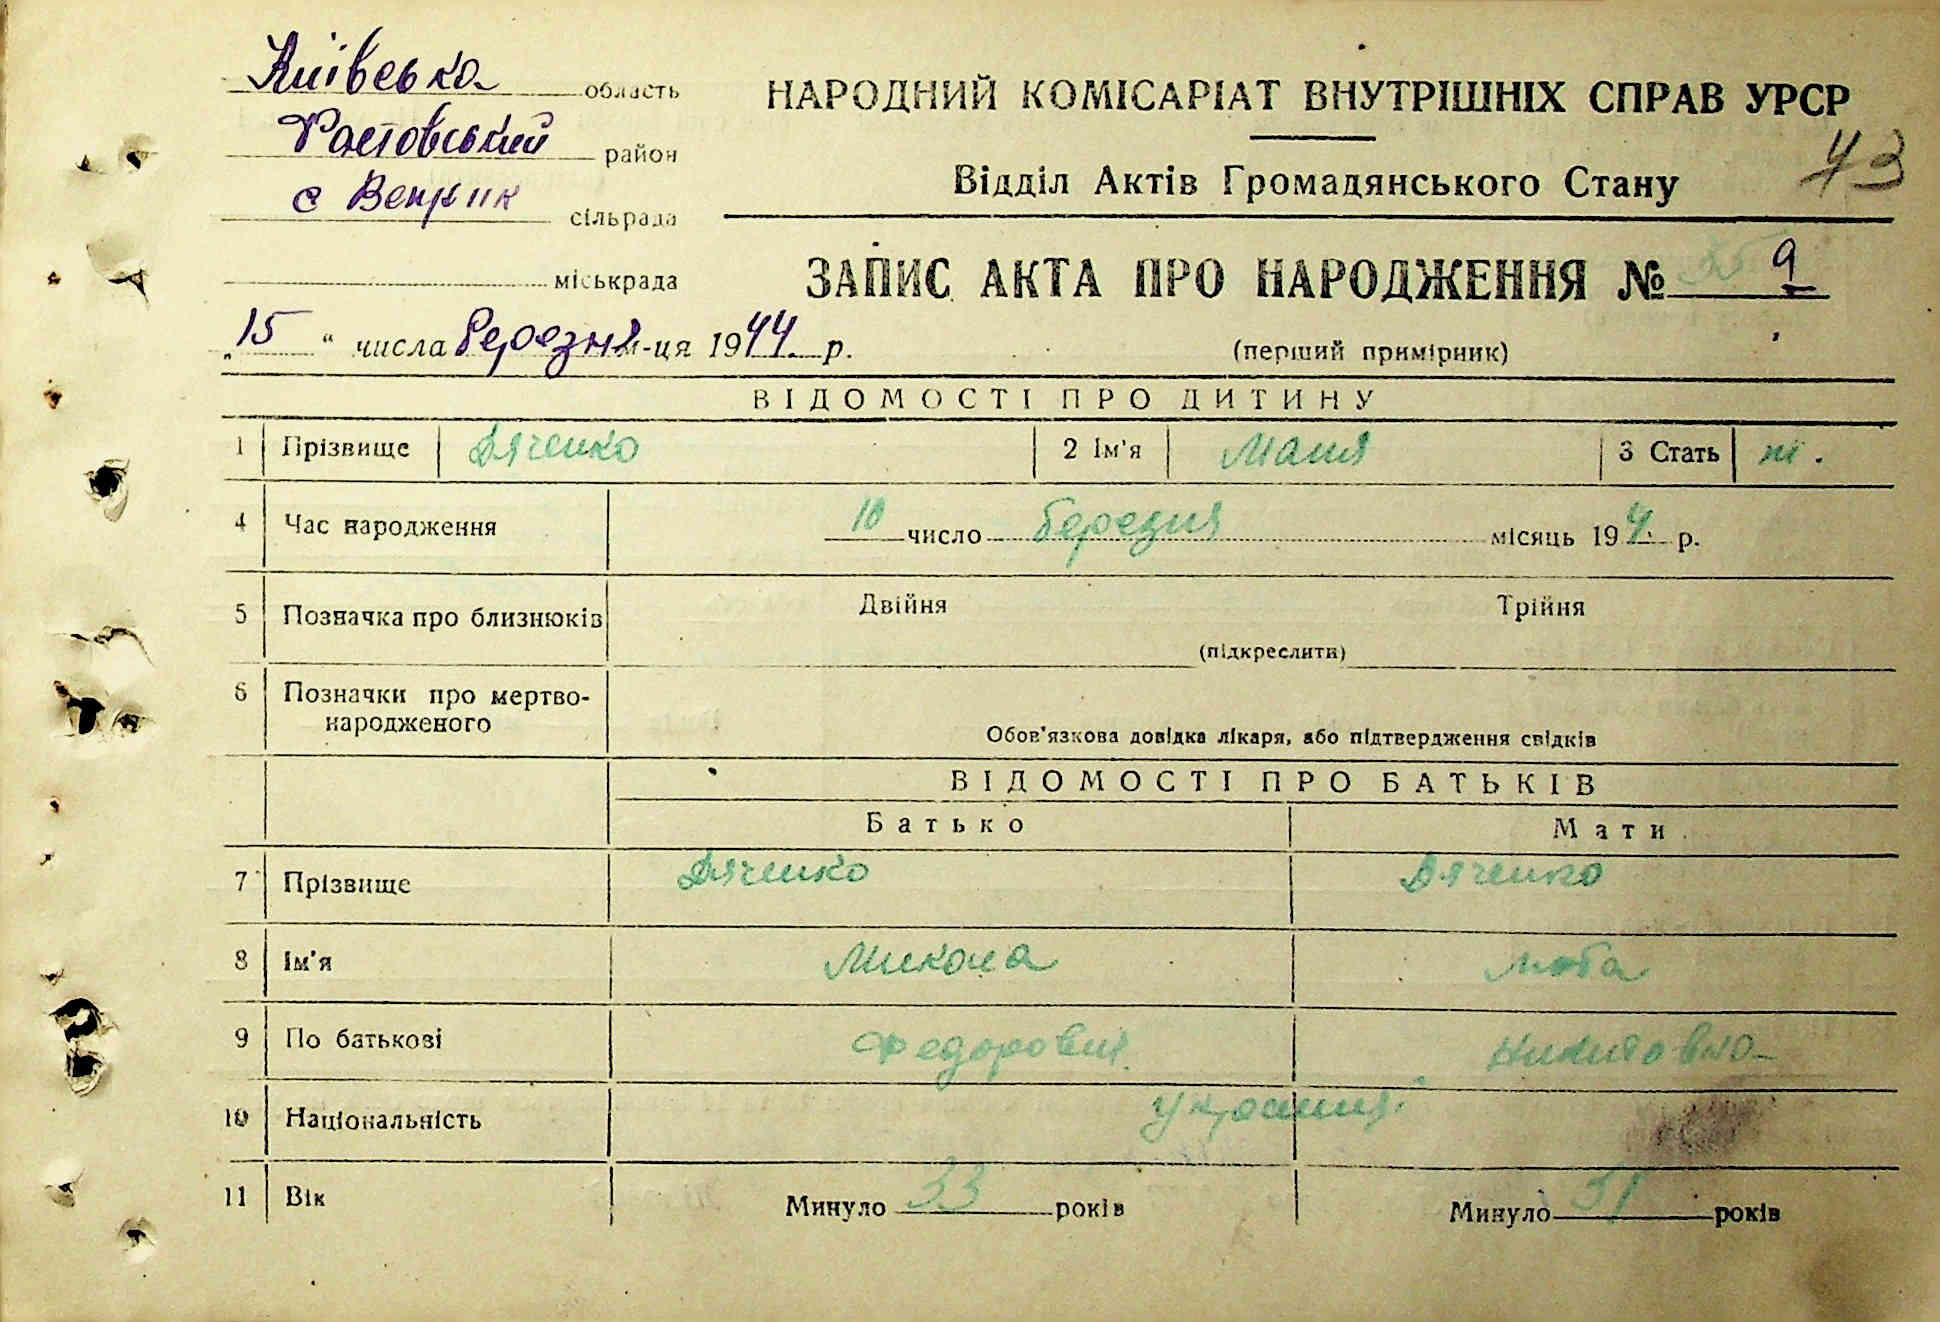 Київська область
НАРОДНИЙ КОМІСАРІАТ ВНУТРІШНІХ СПРАВ УРСР
район
Відділ Актів Громадянського Стану
43
с Веприк сільрада
міськрада
ЗАПИС АКТА ПРО НАРОДЖЕННЯ № 9
„15“ числа березня м-ця 1944 р.
(перший примірник)
ВІДОМОСТІ ПРО ДИТИНУ
1 Прізвище Дяченко 2 Ім'я Маня 3 Стать ж.
4 Час народження 10 число березня місяць 194 4. р.
5 Позначка про близнюків Двійня Трійня
(підкреслити)
6 Позначки про мертво-
народженого
Обов'язкова довідка лікаря, або підтвердження свідків
ВІДОМОСТІ ПРО БАТЬКІВ
Батько Мати
7 Прізвище Дяченко Дяченко
8 Ім'я Микола Люба
9 По батькові Федорович Никитовна
10 Національність
11 Вік Минуло 33 років Минуло 31 років